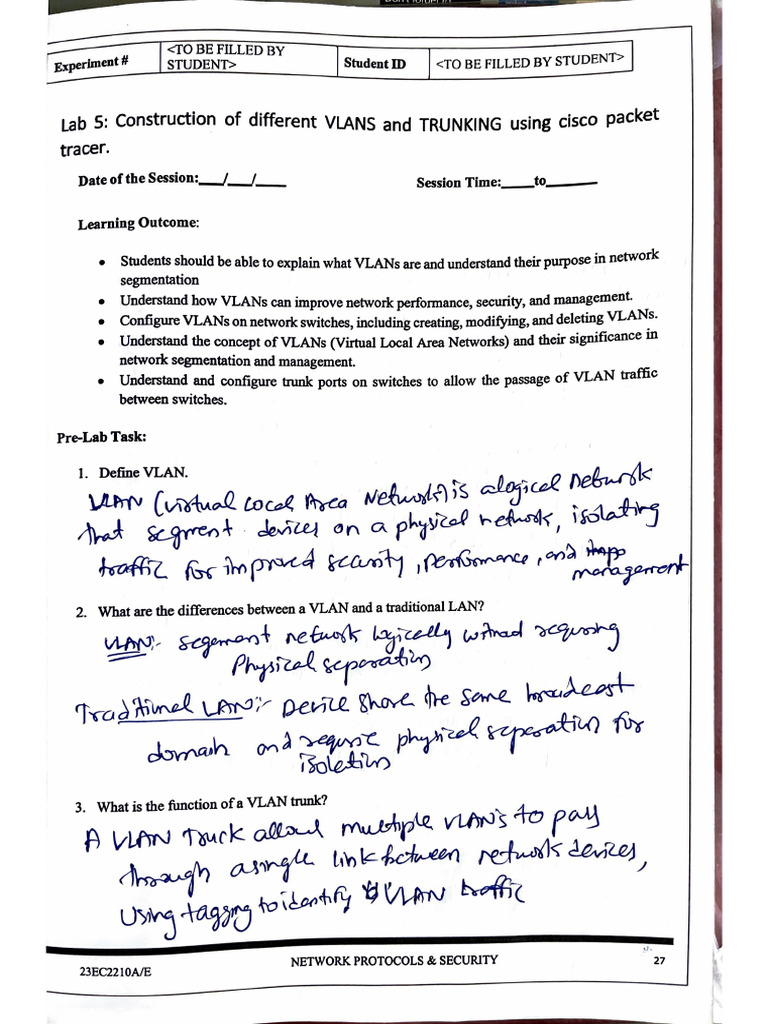 Experiment #
<TO BE FILLED BY
STUDENT>
Student ID
<TO BE FILLED BY STUDENT>
Lab 5: Construction of different VLANS and TRUNKING using cisco packet
tracer.
Date of the Session:___/___/____ Session Time:____to______
Learning Outcome:
• Students should be able to explain what VLANs are and understand their purpose in network
segmentation
• Understand how VLANs can improve network performance, security, and management.
• Configure VLANs on network switches, including creating, modifying, and deleting VLANs.
• Understand the concept of VLANs (Virtual Local Area Networks) and their significance in
network segmentation and management.
• Understand and configure trunk ports on switches to allow the passage of VLAN traffic
between switches.
Pre-Lab Task:
1. Define VLAN.
VLAN (Virtual Local Area Network) is a logical network
that segment devices on a physical network, isolating
traffic for improved security, performance, and
management
2. What are the differences between a VLAN and a traditional LAN?
VLAN:- segement network logically without requiring
Physical separation
Traditional LAN:- Device share the same broadcast
domain and require physical seperation for
isolation
3. What is the function of a VLAN trunk?
A VLAN Truck allows multiple VLAN's to pass
through a single link between network devices,
Using tagging to identify VLAN traffic
23EC2210A/E
NETWORK PROTOCOLS & SECURITY
27